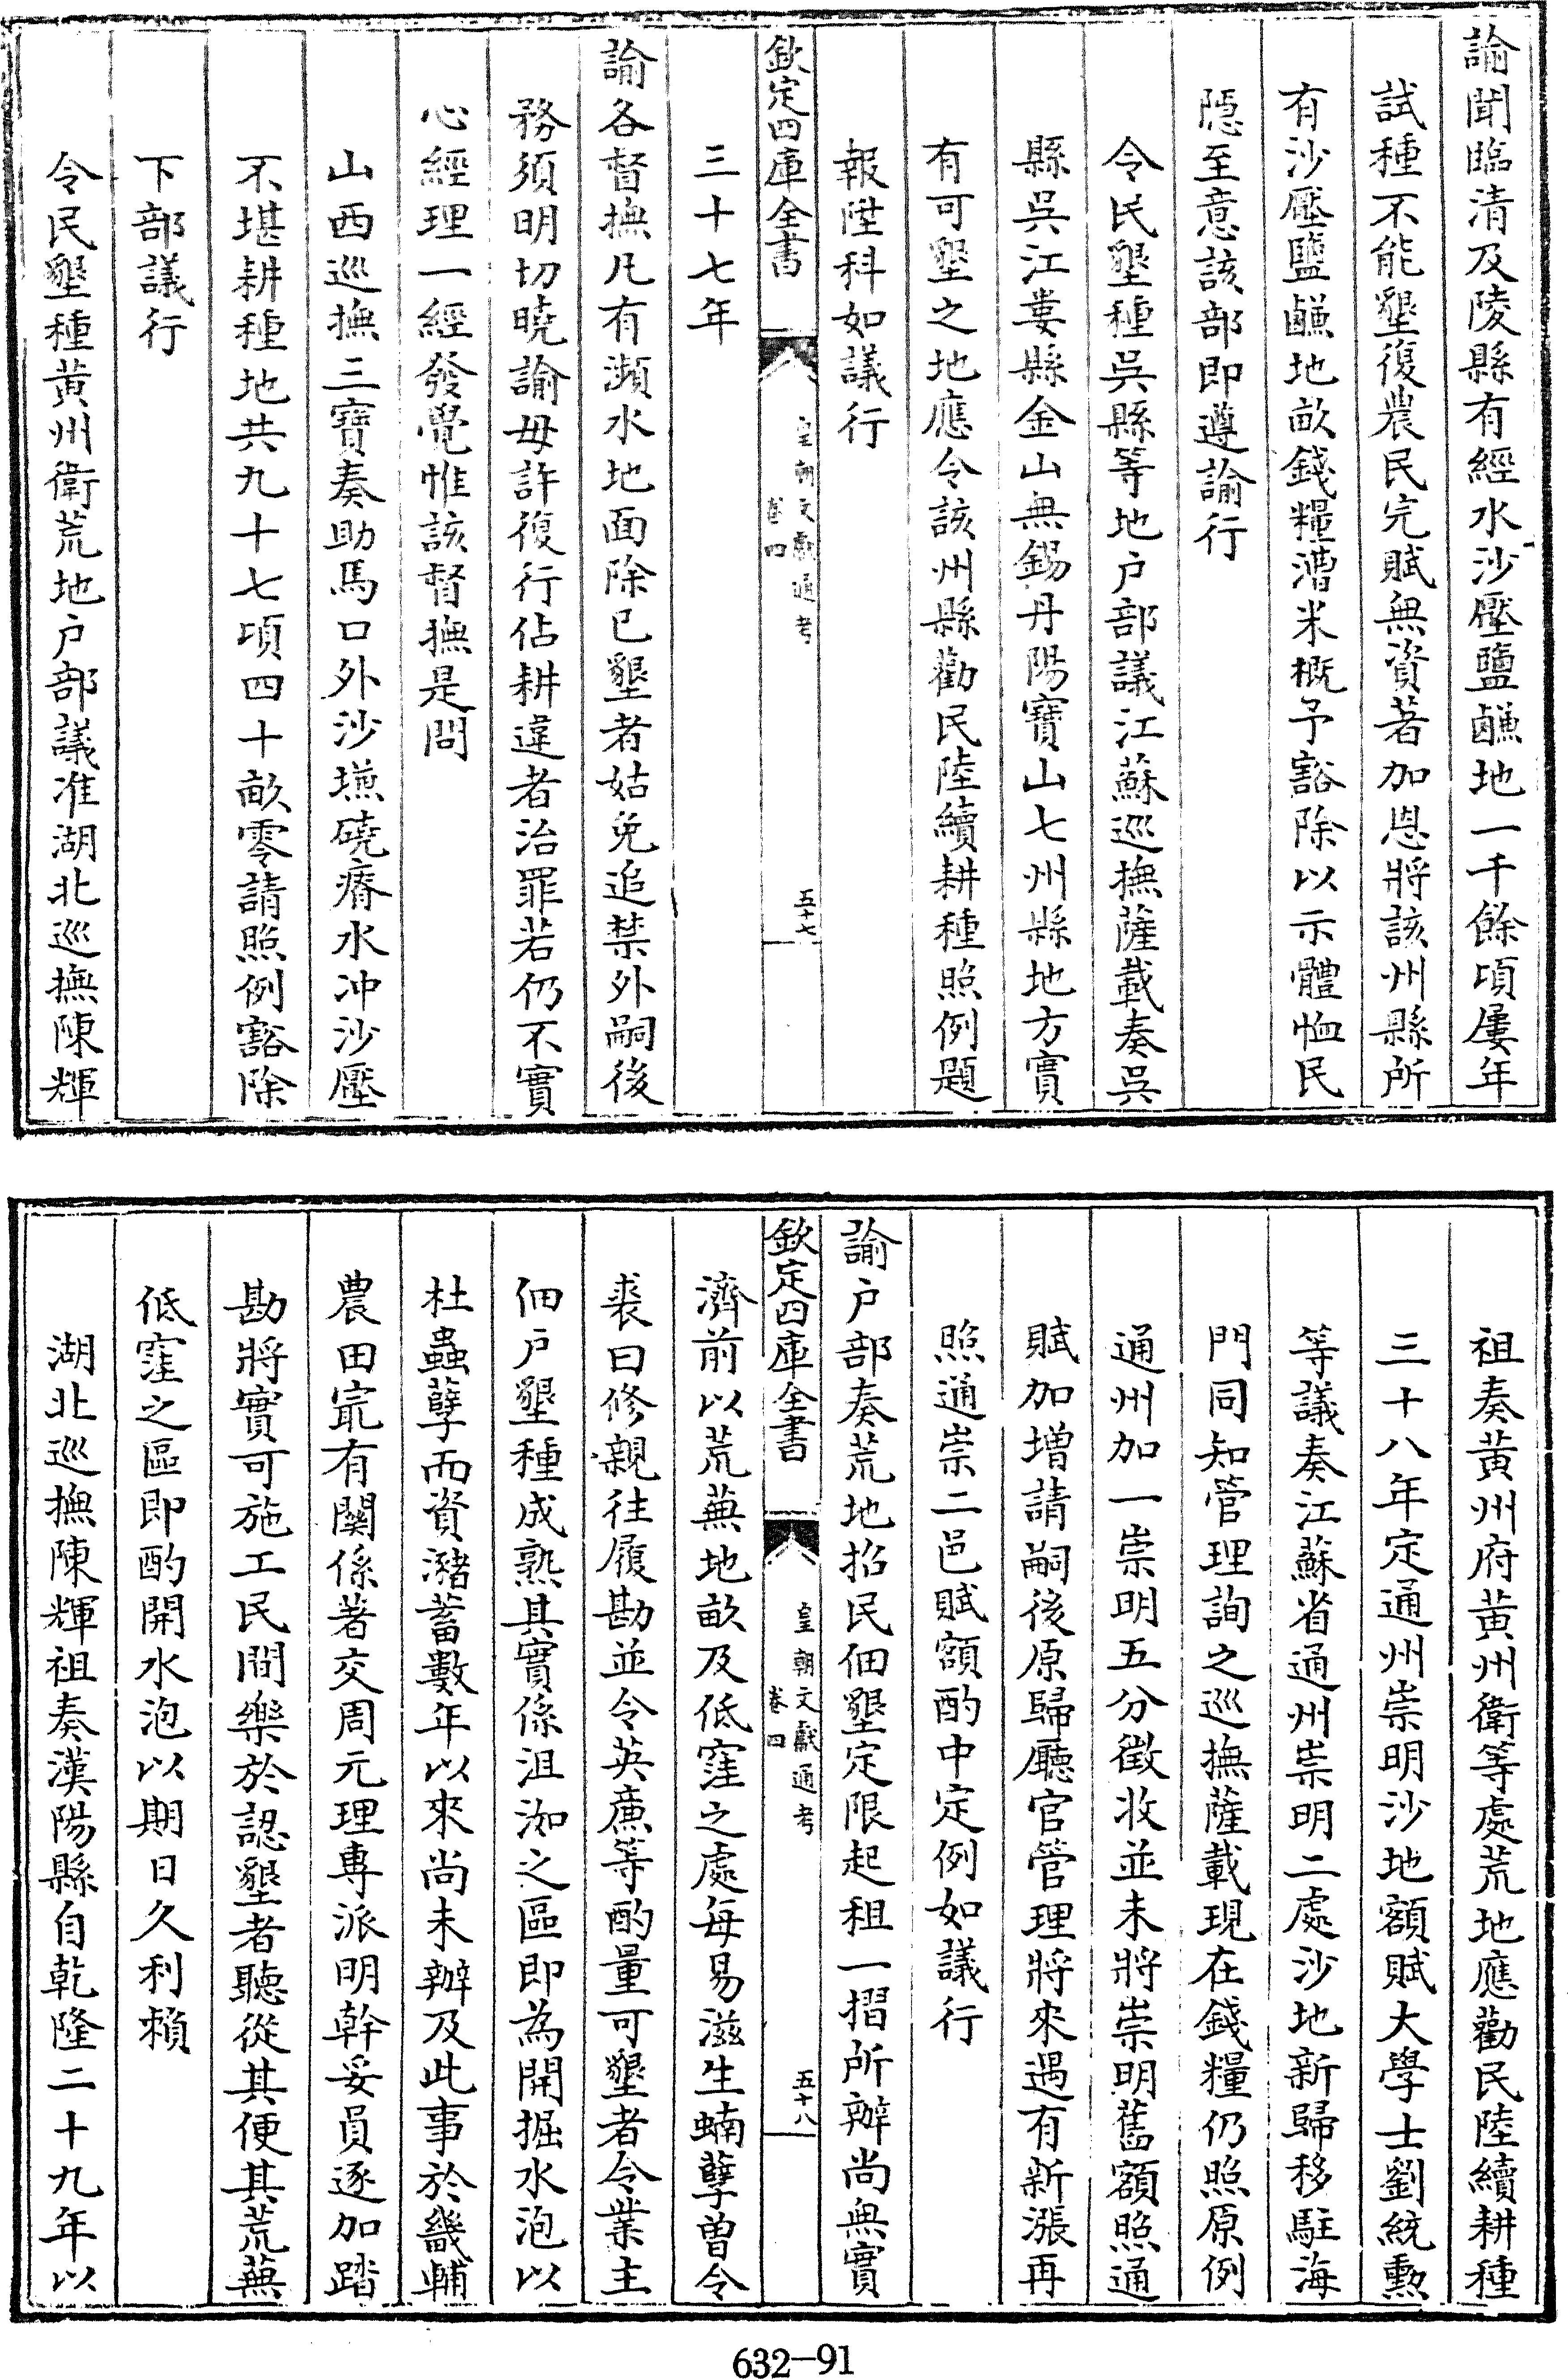 諭聞臨清及陵縣有經水沙壓鹽鹻地一千餘頃屢年
試種不能墾復農民完賦無資著加恩將該州縣所
有沙壓鹽鹻地畝錢糧漕米概予豁除以示體恤民
隱至意該部即遵諭行
令民墾種吳縣等地户部議江蘇巡撫薩載奏吳
縣吳江婁縣金山無錫丹陽寶山七州縣地方實
有可墾之地應令該州縣勸民陸續耕種照例題
報陞科如議行
欽定四庫全書
皇朝文獻通考
卷四
五十七
三十七年
諭各督撫凡有瀕水地面除已墾者姑免追禁外嗣後
務須明切曉諭毋許復行佔耕違者治罪若仍不實
心經理一經發覺惟該督撫是問
山西巡撫三寶奏助馬口外沙塉磽瘠水冲沙壓
不堪耕種地共九十七頃四十畝零請照例豁除
下部議行
令民墾種黄州衛荒地户部議准湖北巡撫陳輝
祖奏黄州府黄州衛等處荒地應勸民陸續耕種
三十八年定通州崇明沙地額賦大學士劉統勲
等議奏江蘇省通州崇明二處沙地新歸移駐海
門同知管理詢之巡撫薩載現在錢糧仍照原例
通州加一崇明五分徵收並未將崇明舊額照通
賦加增請嗣後原歸廳官管理將來遇有新漲再
照通崇二邑賦額酌中定例如議行
諭户部奏荒地招民佃墾定限起租一摺所辦尚無實
欽定四庫全書
皇朝文獻通考
卷四
五十八
濟前以荒蕪地畝及低窪之處每易滋生蝻孽曾令
裘曰修親往履勘並令英廉等酌量可墾者令業主
佃户墾種成熟其實係沮洳之區即為開掘水泡以
杜蟲孽而資瀦蓄數年以來尚未辦及此事於畿輔
農田寔有關係著交周元理專派明幹妥員逐加踏
勘將實可施工民間樂於認墾者聽從其便其荒蕪
低窪之區即酌開水泡以期日久利賴
湖北巡撫陳輝祖奏漢陽縣自乾隆二十九年以
632-91